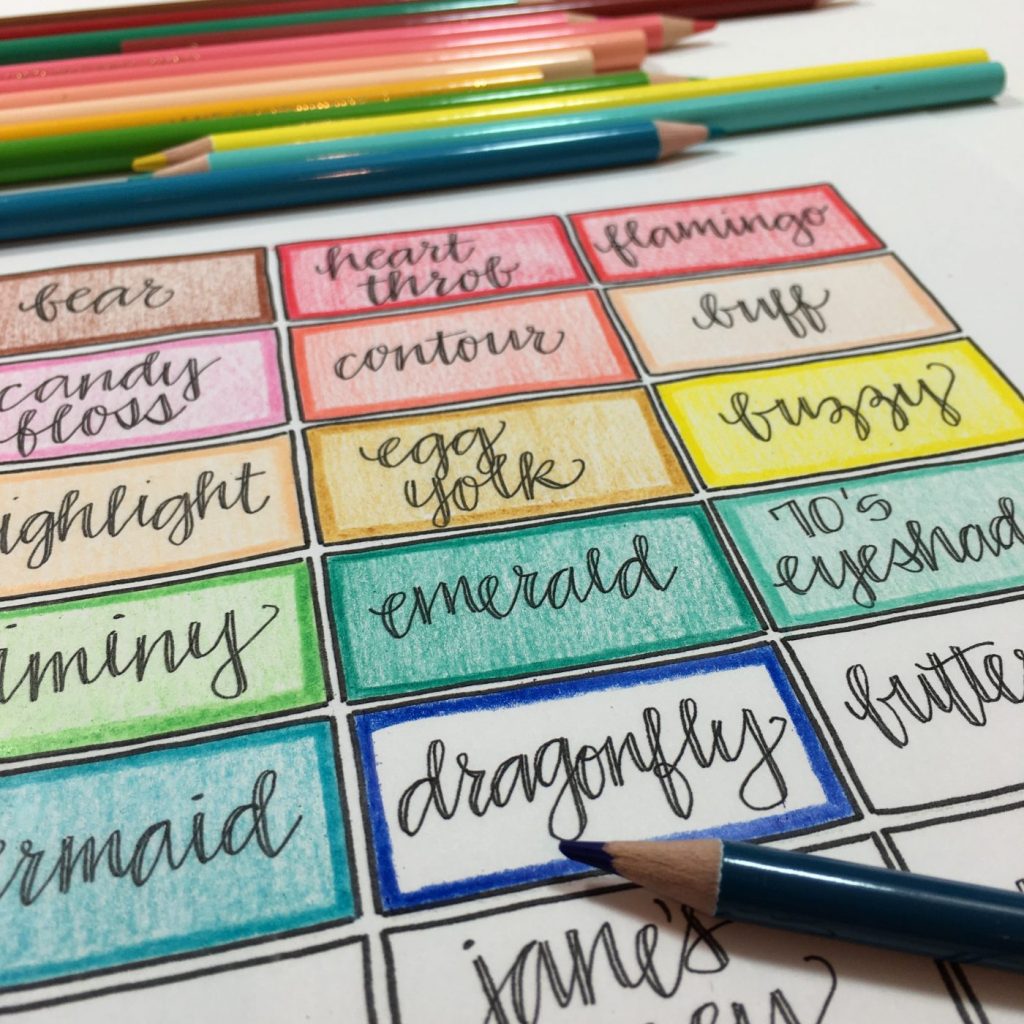 bear
heart
throb
flamingo
candy
floss
contour
buff
ighlight
egg
yolk
buzzy
iminy
emerald
70's
eyeshad
ermaid
dragonfly
butter
jane's